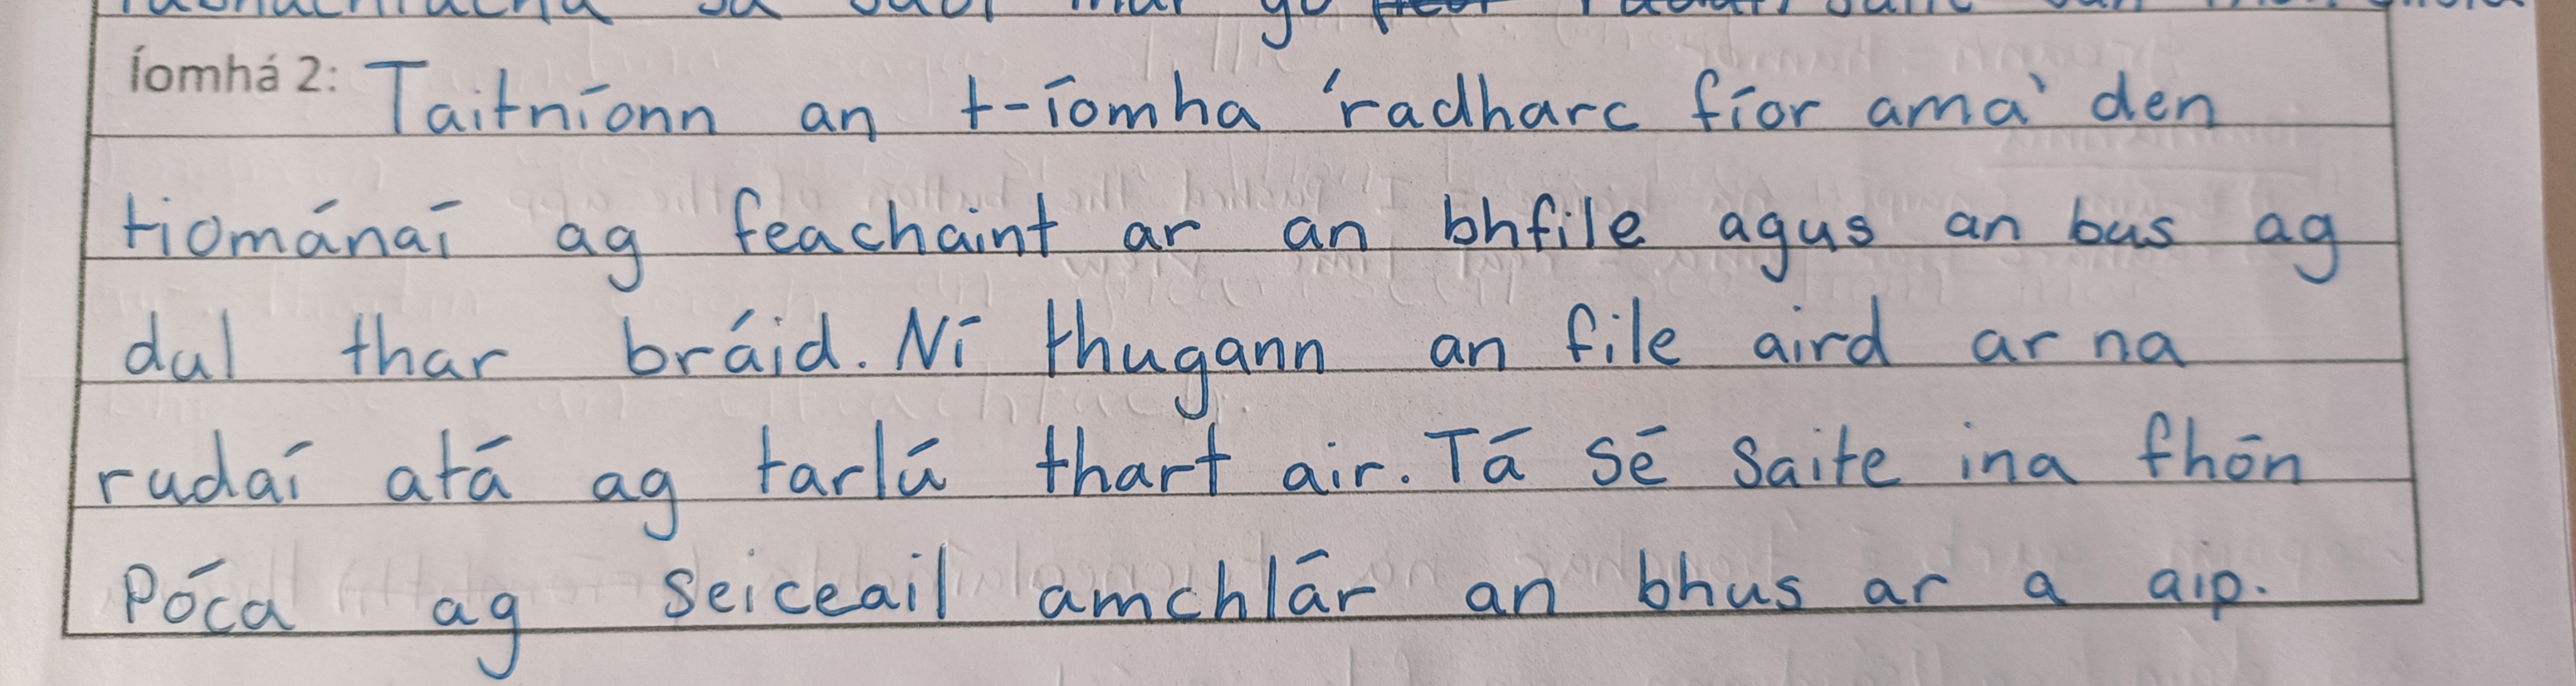 Íomhá 2: Taitníonn an t-íomha 'radharc fíor ama' den
tiománaí ag feachaint ar an bhfile agus an bus ag
dul thar bráid. Ní thugann an file aird ar na
rudaí atá ag tarlú thart air. Tá sé saite ina fhón
póca ag seiceail amchlár an bhus ar a aip.